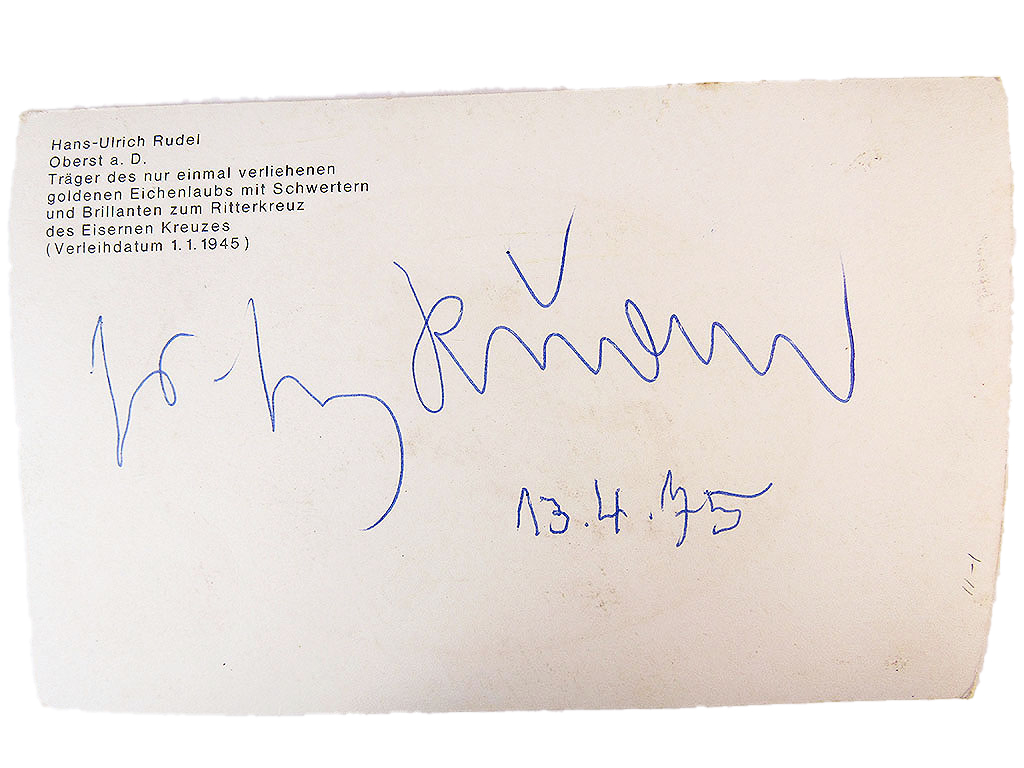 Hans-Ulrich Rudel
Oberst a. D.
Träger des nur einmal verliehenen
goldenen Eichenlaubs mit Schwertern
und Brillanten zum Ritterkreuz
des Eisernen Kreuzes
(Verleihdatum 1.1.1945)
13.4.75